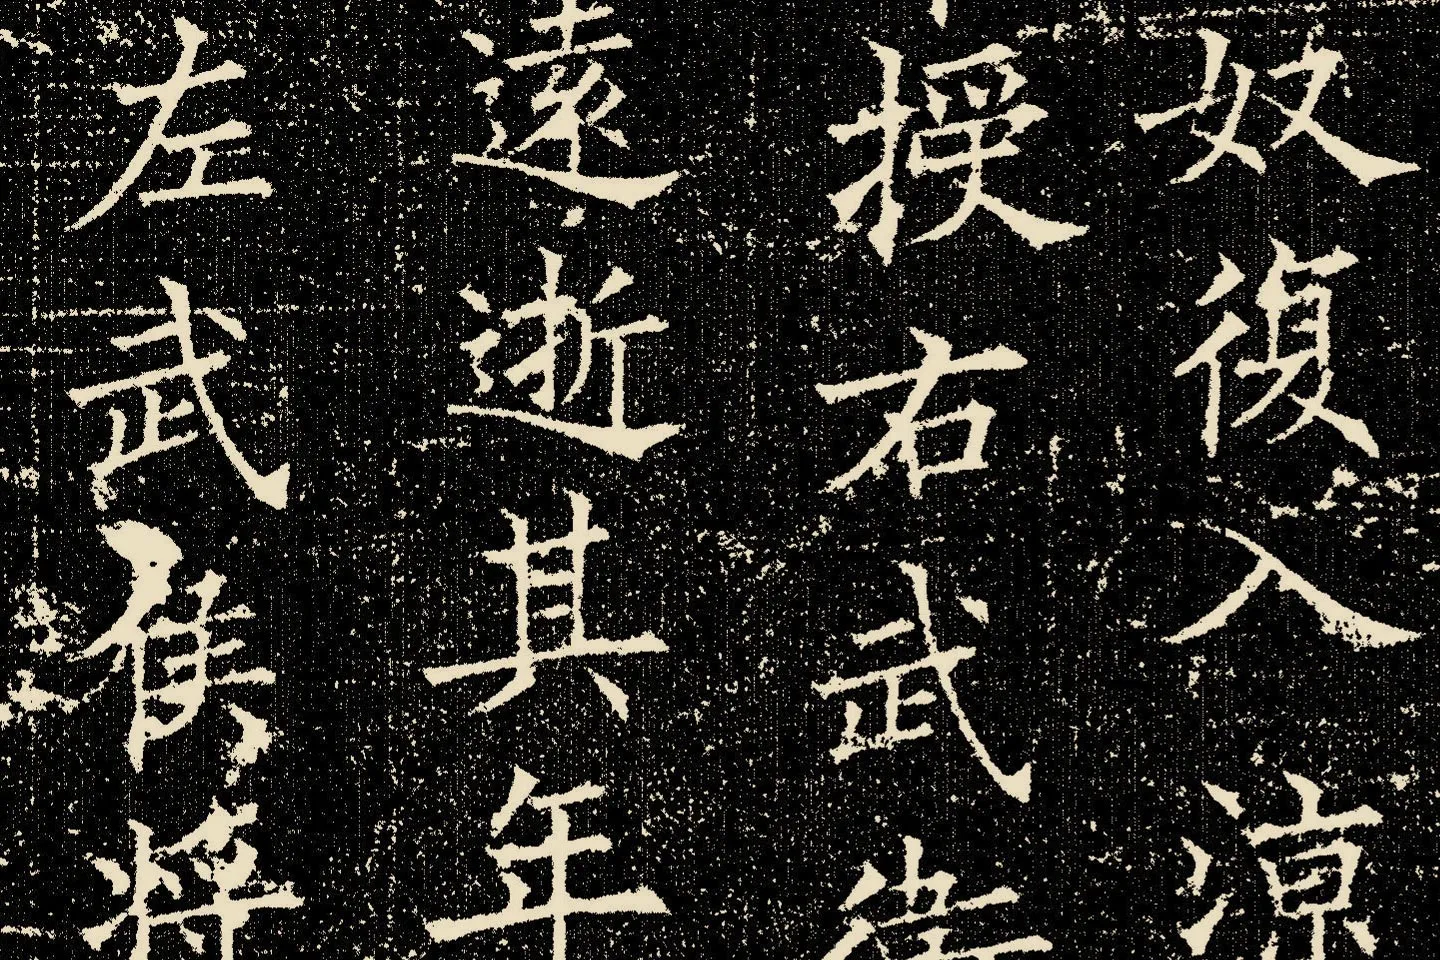 奴復入涼
授右武衛
遠逝其年
左武侯將